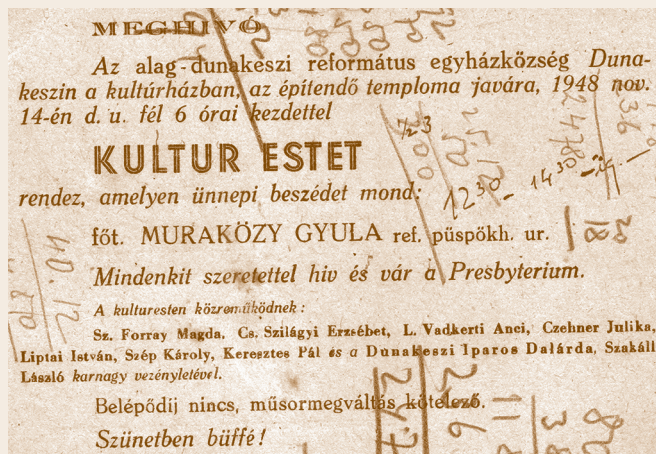 MEGHIVÓ
Az alag-dunakeszi református egyházközség Duna-
keszin a kultúrházban, az építendő temploma javára, 1948 nov.
14-én d. u. fél 6 órai kezdettel
KULTUR ESTET
rendez, amelyen ünnepi beszédet mond:
1230 - 1430 -ig. -
főt. MURAKÖZY GYULA ref. püspökh. ur.
Mindenkit szeretettel hiv és vár a Presbyterium.
A kulturesten közreműködnek:
Sz. Forray Magda, Cs. Szilágyi Erzsébet, L. Vadkerti Anci, Czehner Julika,
Liptai István, Szép Károly, Keresztes Pál és a Dunakeszi Iparos Dalárda, Szakáll
László karnagy vezényletével.
Belépődij nincs, műsormegváltás kötelező.
Szünetben büffé!